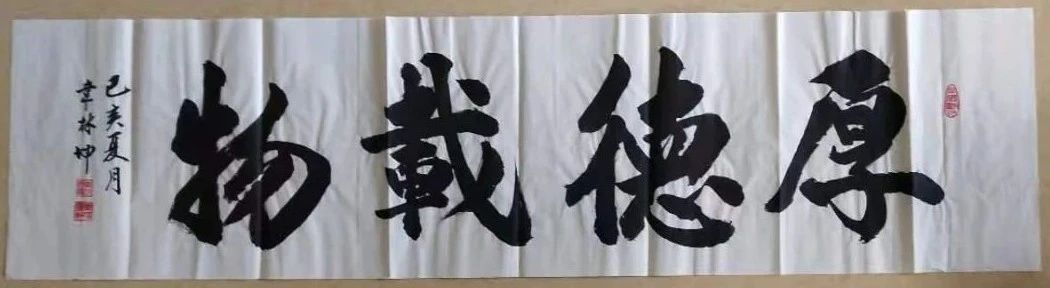 厚德載物
己亥夏月
韋林坤